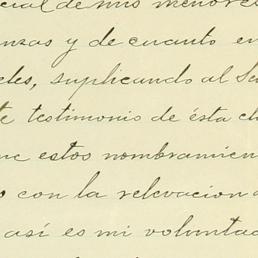 cial de mis menores
anzas y de cuanto en
eles, suplicando al Se
te testimonio de ésta cl
ue estos nombramien
o con la relevacion
asi es mi voluntad